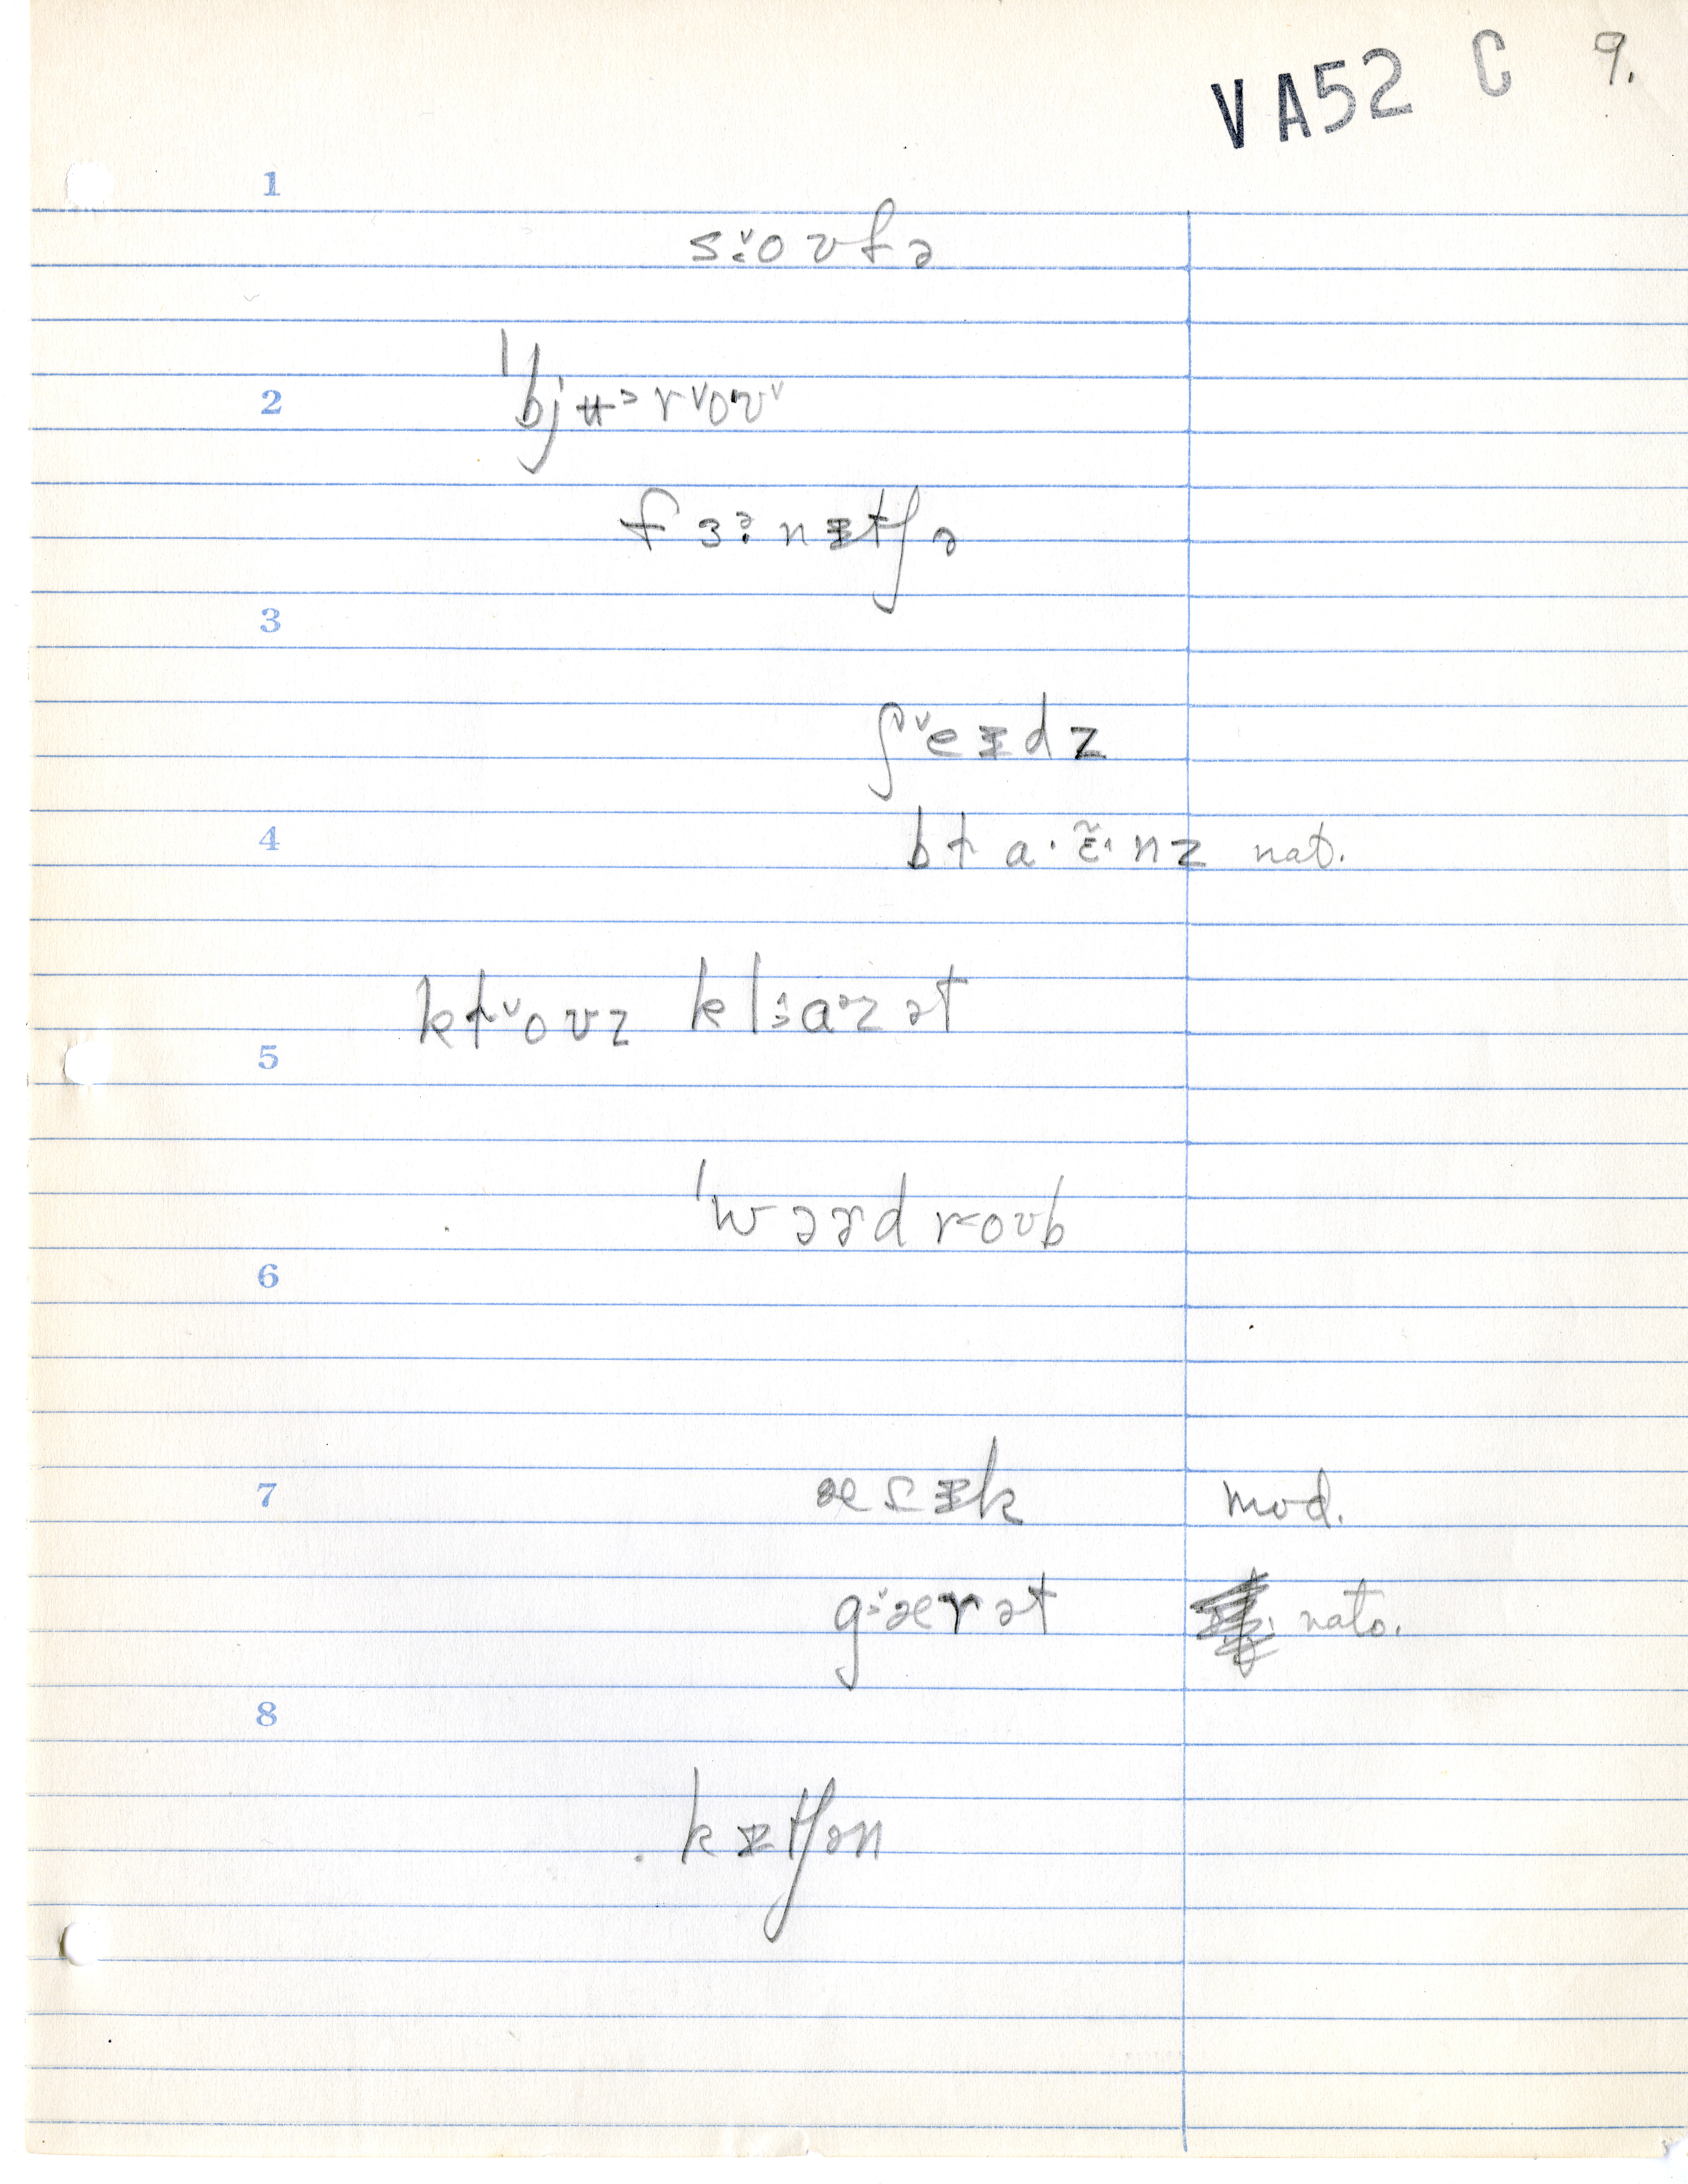 VA52 C 9.
1
s˅:oʊfə
2
ˈbjʉᵊr˅oʊ˅
fɜᵊ:nɪ̵tʃə
3
ʃ˅eɪ̵dz
4
bɫa·ɛ̃·nz nat.
kɫ˅oʊz kl:aᵊzət
5
ˈwɔɚdr<oʊb
6
7
æɾɪ̵k mod.
g:˅ærət nato.
8
kɪ̵tʃən